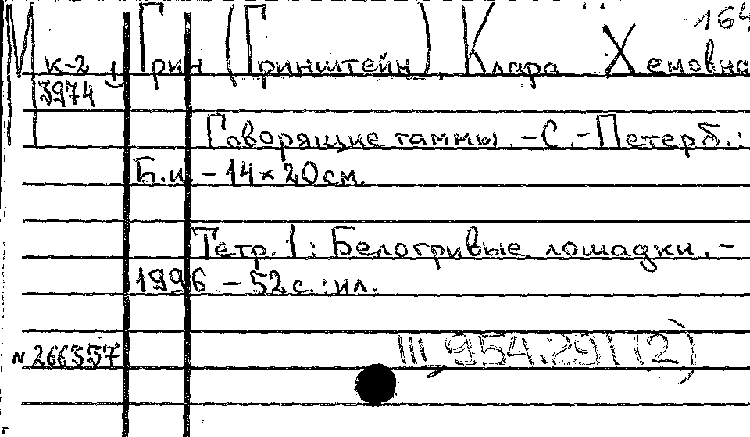 164
М к-2 Грин (Гринштейн), Клара Хемовна
3974
Говорящие гаммы. - С.-Петерб.:
Б.и. - 14×20см.
Тетр. 1: Белогривые лошадки. -
1996 - 52с.: ил.
N 266557 III, 954.291 (2)